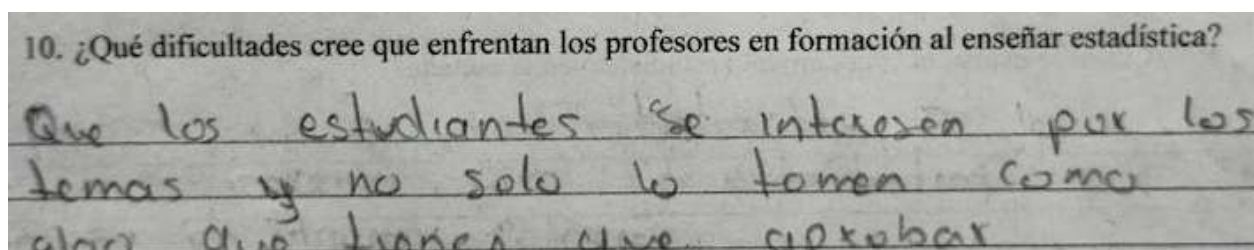 10. ¿Qué dificultades cree que enfrentan los profesores en formación al enseñar estadística?
Que los estudiantes se interesen por los
temas y no solo lo tomen como
algo que tienen que aprobar